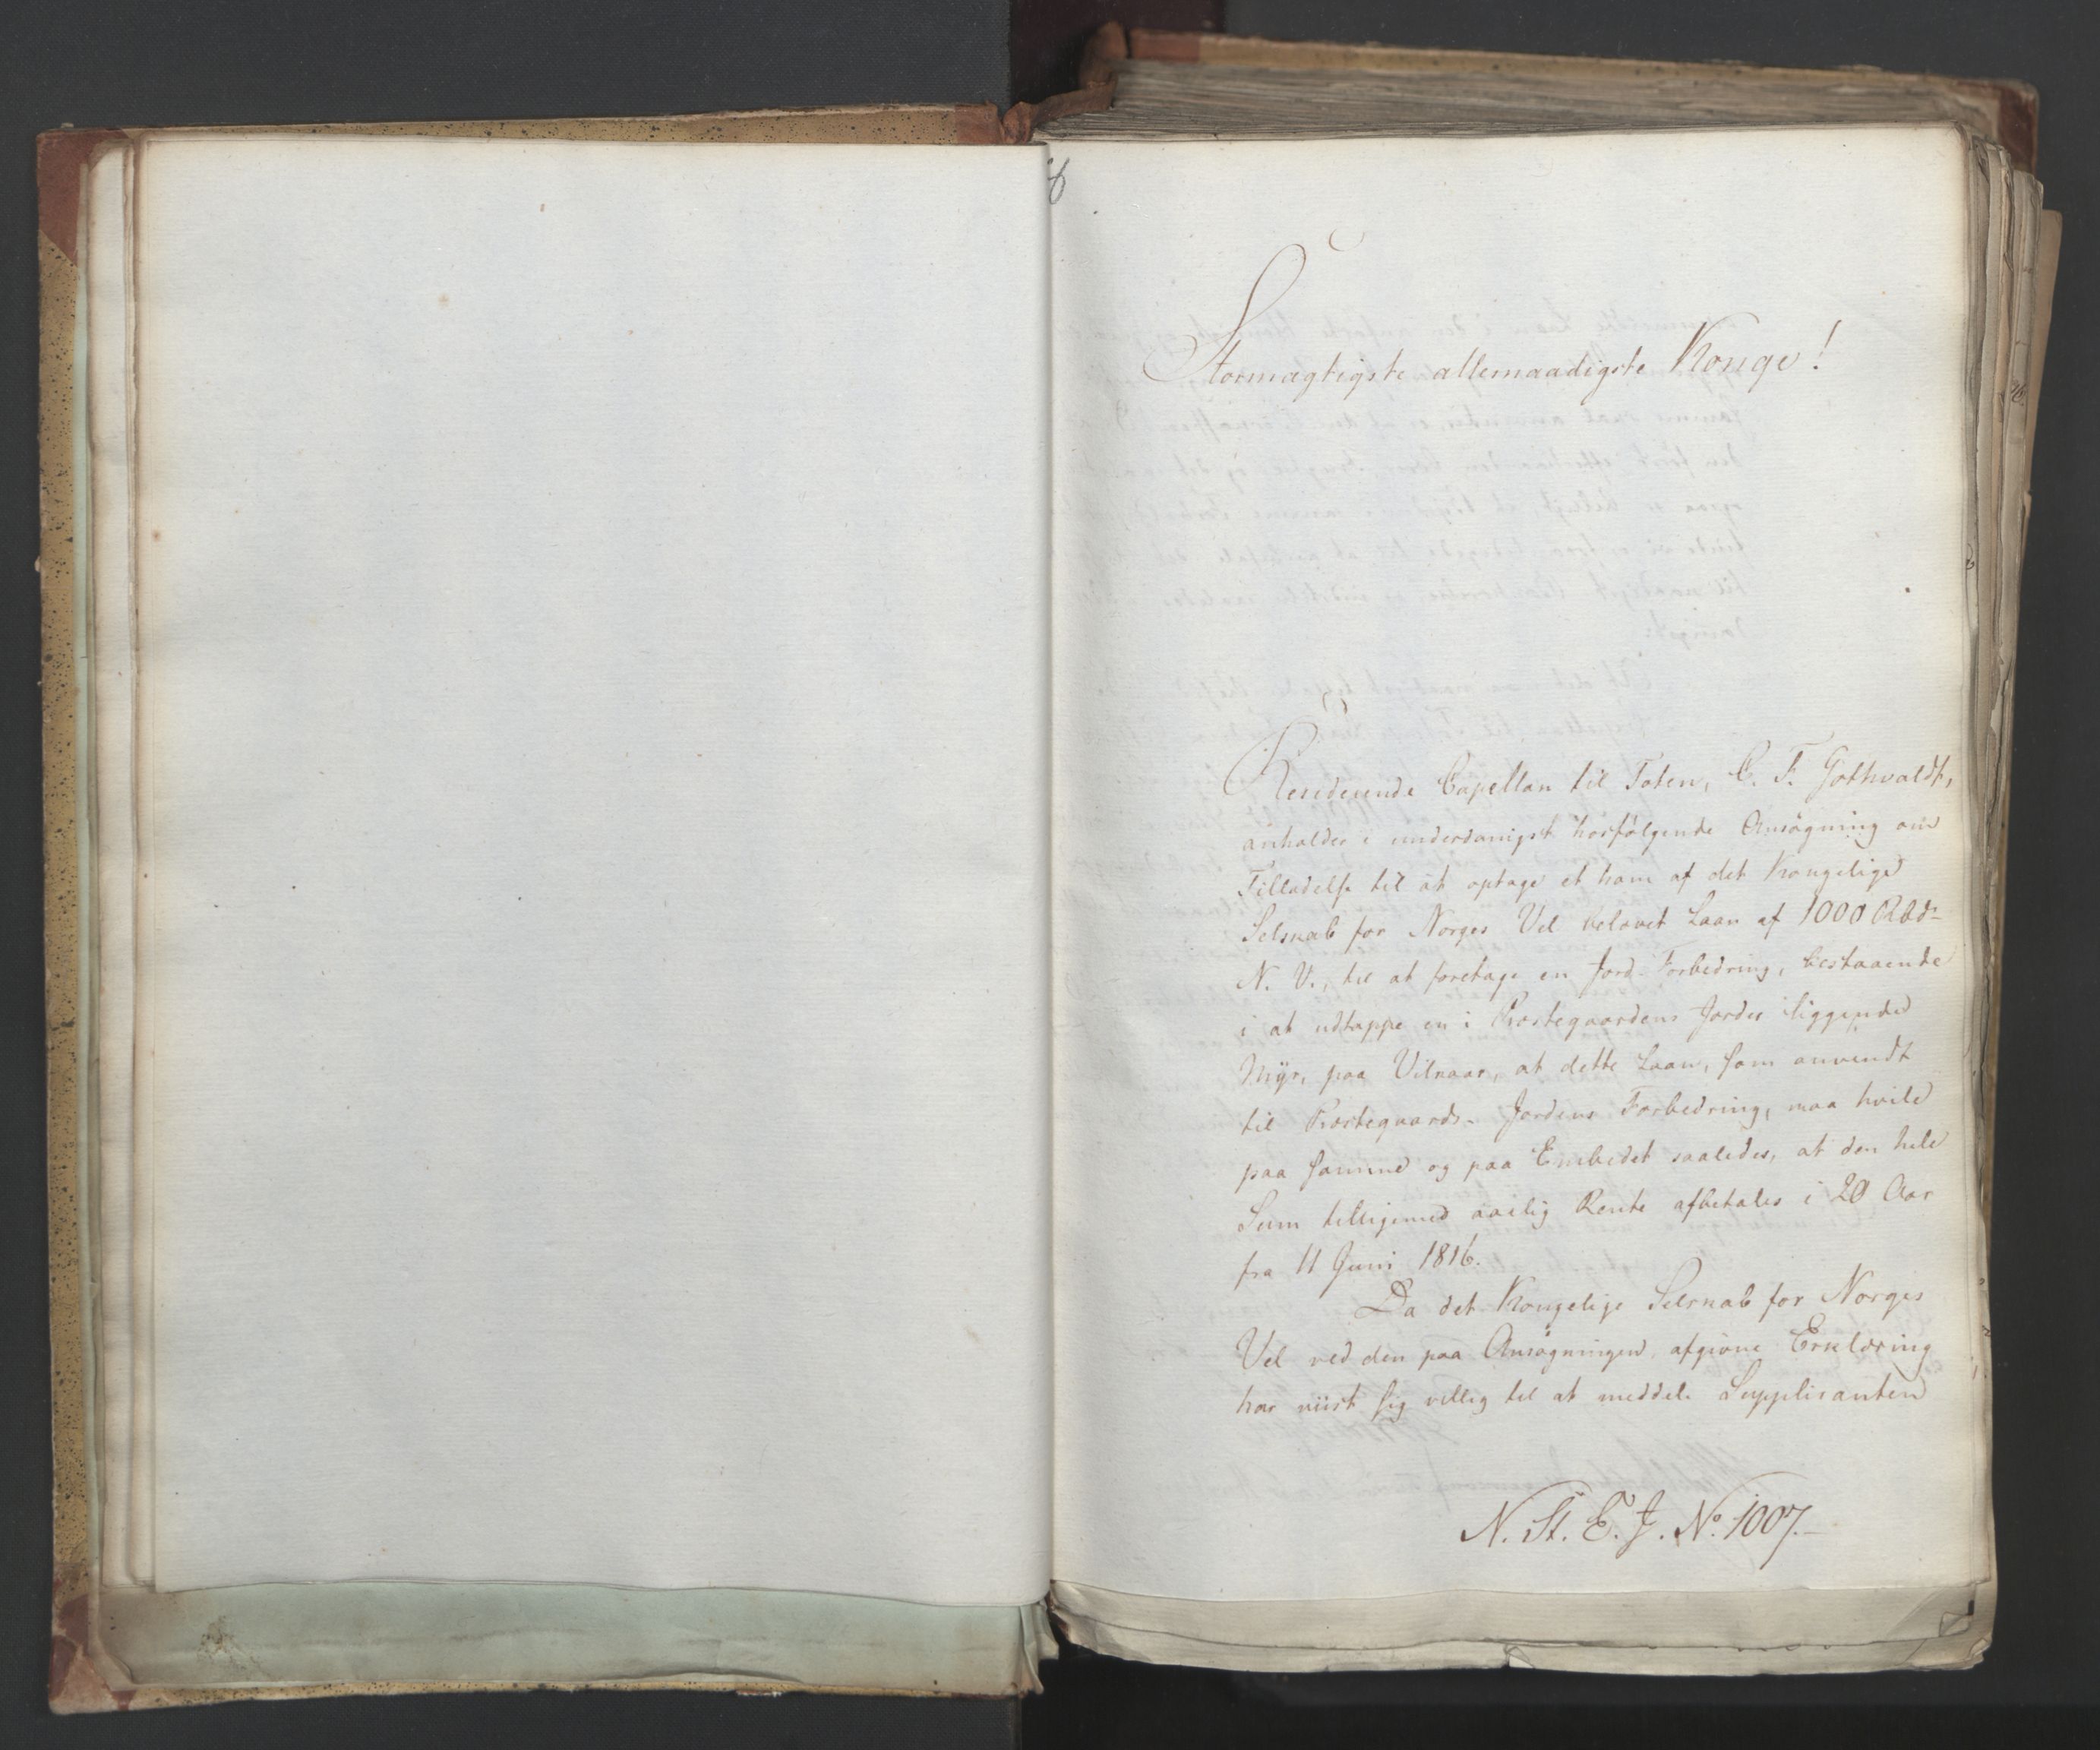 Stormægtigste allernaadigste Konge!
Residerende Capellan til Toten, C. F. Gothvaldt,
anholder i underdanigst hosfølgende Ansøgning om
Tilladelse til at optage et ham af det Kongelige
Selskab for Norges Vel belovet Laan af 1000 Rbdr
N. V., til at foretage en Jord-Forbedring, bestaaende
i at udtappe en i Præstegaardens Jorder liggende
Myr, paa Vilkaar, at dette Laan, som anvendt
til Præstegaards-Jordens Forbedring, maa hvile
paa samme og paa Embedet saaledes, at den hele
Sum tilligemed aarlig Rente afbetales i 20 Aar
fra 11 Juni 1816.
Da det Kongelige Selskab for Norges
Vel ved den paa Ansøgningen afgivne Erklæring
har viist sig villig til at meddele Supplikanten
N. St. E. J. No. 1007.